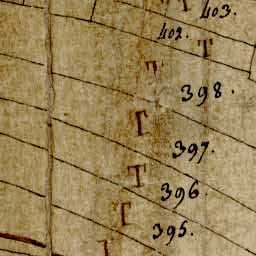 T 403.
402. T
T 398.
T 397.
T 396.
T 395.